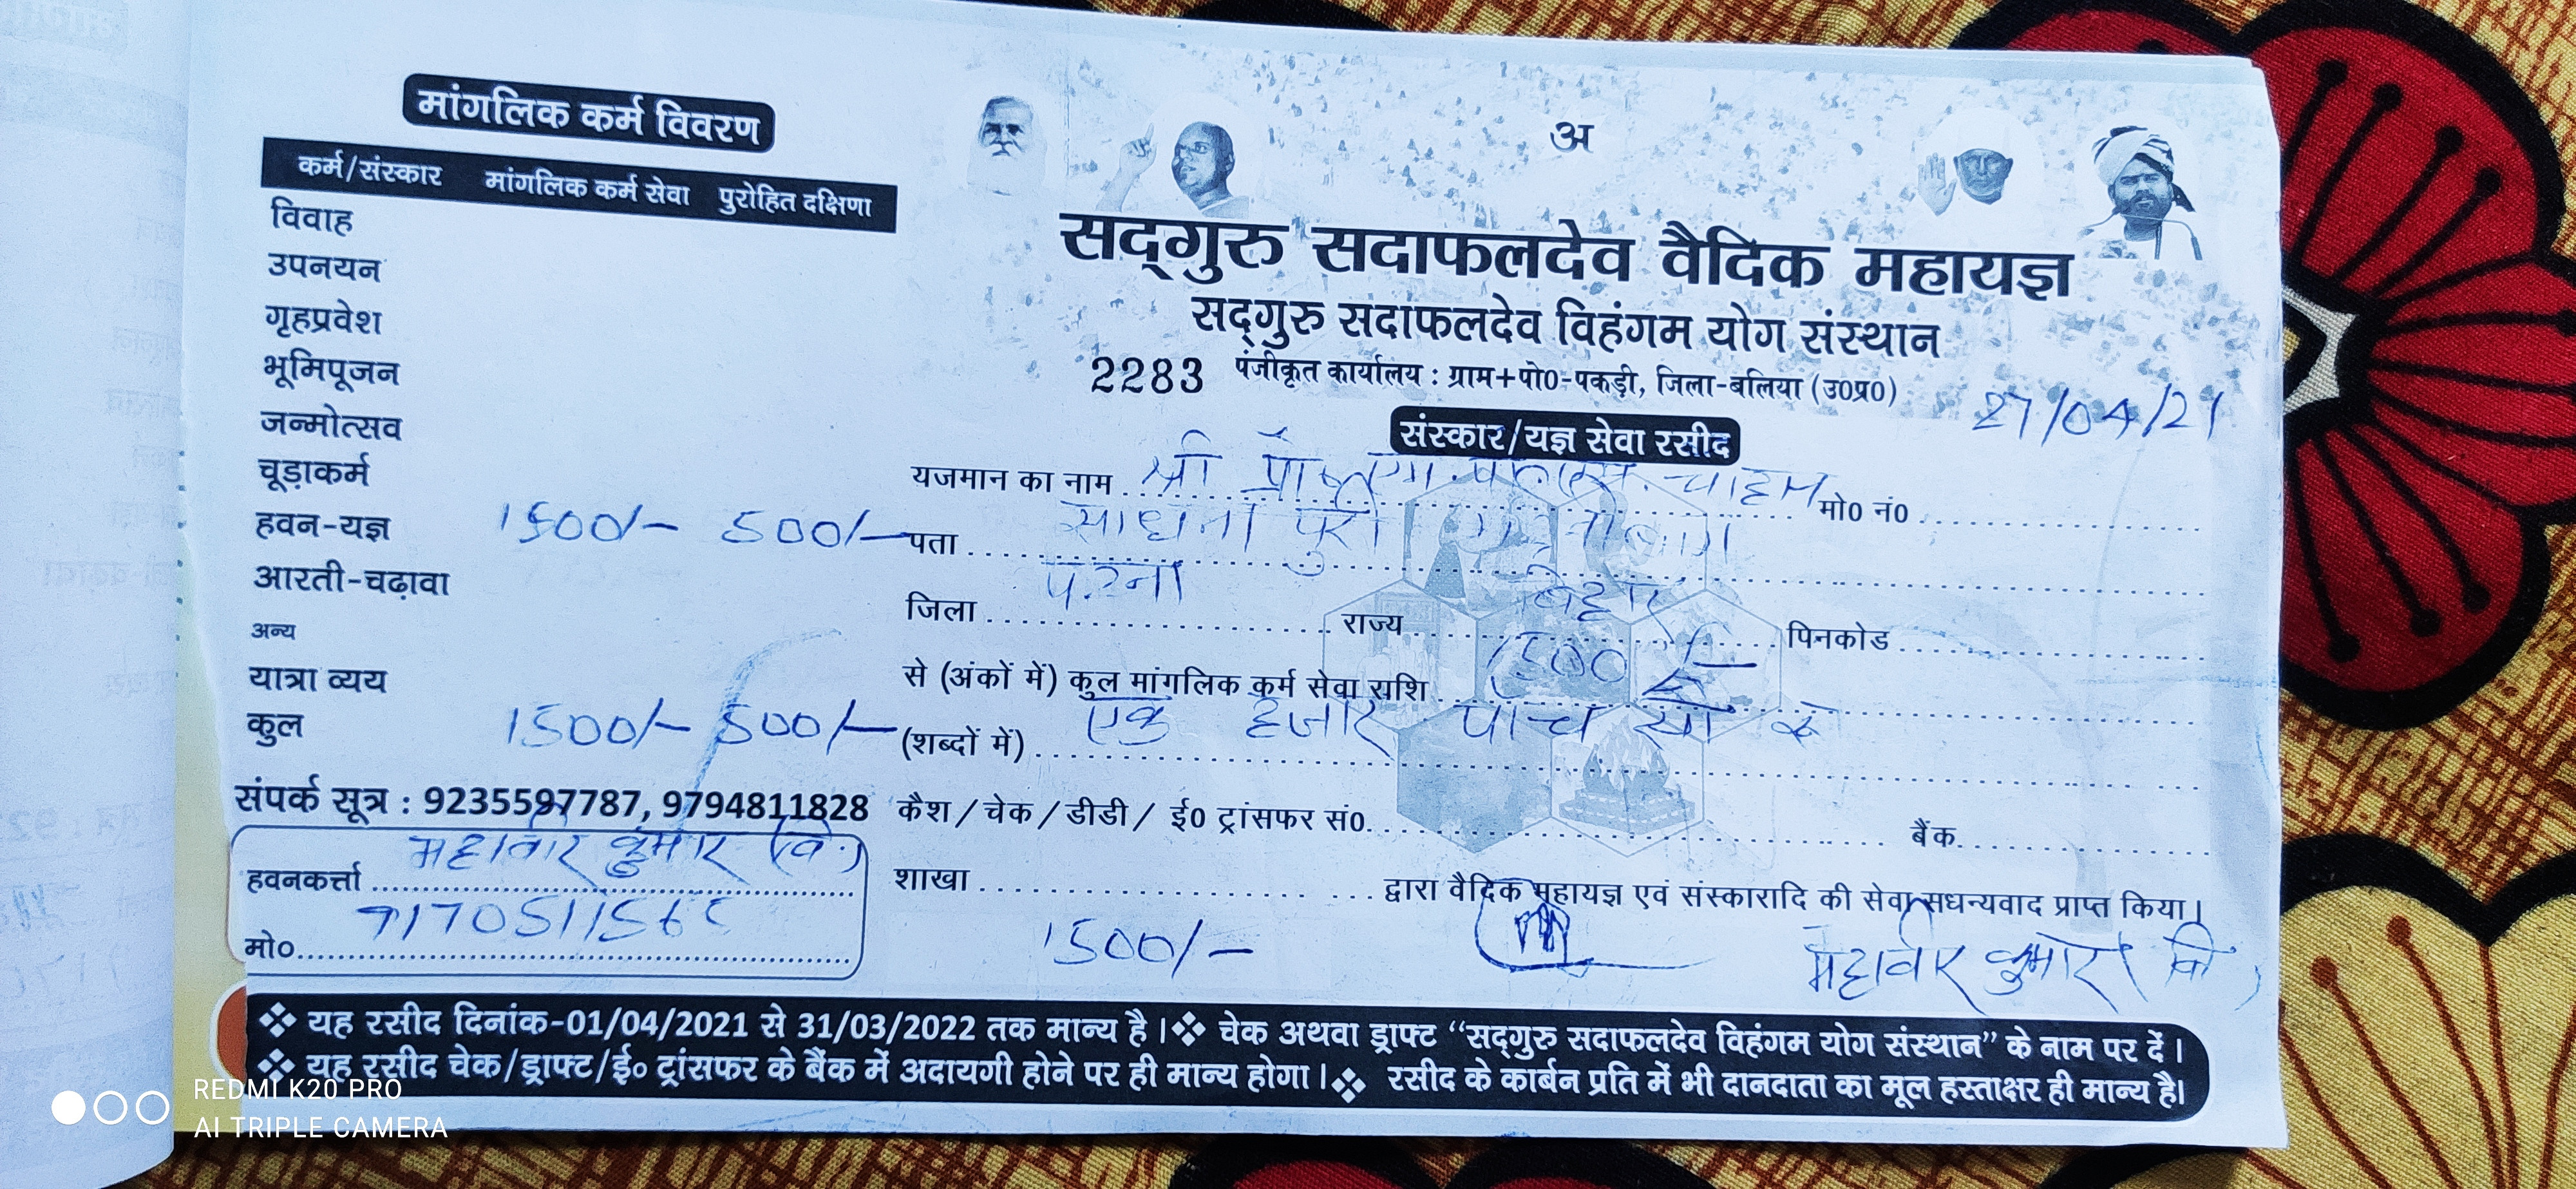 मांगलिक कर्म विवरण
कर्म/संस्कार मांगलिक कर्म सेवा पुरोहित दक्षिणा
विवाह
उपनयन
गृहप्रवेश
भूमिपूजन
जन्मोत्सव
चूड़ाकर्म
हवन-यज्ञ 1500/- 500/-
आरती-चढ़ावा
अन्य
यात्रा व्यय
कुल 1500/- 500/-
संपर्क सूत्र : 9235597787, 9794811828
हवनकर्त्ता महावीर कुमार (वि.)
मो०
अ
सद्गुरु सदाफलदेव वैदिक महायज्ञ
सद्गुरु सदाफलदेव विहंगम योग संस्थान
2283 पंजीकृत कार्यालय : ग्राम+पो0-पकड़ी, जिला-बलिया (उ0प्र0)
27/04/21
संस्कार/यज्ञ सेवा रसीद
यजमान का नाम श्री मो0 नं0
पता साधना पुरी
जिला पटना राज्य बिहार पिनकोड
से (अंकों में) कुल मांगलिक कर्म सेवा राशि 1500/-
(शब्दों में) एक हजार पांच सौ रू
कैश/चेक/डीडी/ ई0 ट्रांसफर सं0 बैंक
शाखा द्वारा वैदिक महायज्ञ एवं संस्कारादि की सेवा सधन्यवाद प्राप्त किया।
1500/- महावीर कुमार (वि)
❖ यह रसीद दिनांक-01/04/2021 से 31/03/2022 तक मान्य है। ❖ चेक अथवा ड्राफ्ट “सद्गुरु सदाफलदेव विहंगम योग संस्थान” के नाम पर दें।
❖ यह रसीद चेक/ड्राफ्ट/ई० ट्रांसफर के बैंक में अदायगी होने पर ही मान्य होगा। ❖ रसीद के कार्बन प्रति में भी दानदाता का मूल हस्ताक्षर ही मान्य है।
REDMI K20 PRO
AI TRIPLE CAMERA